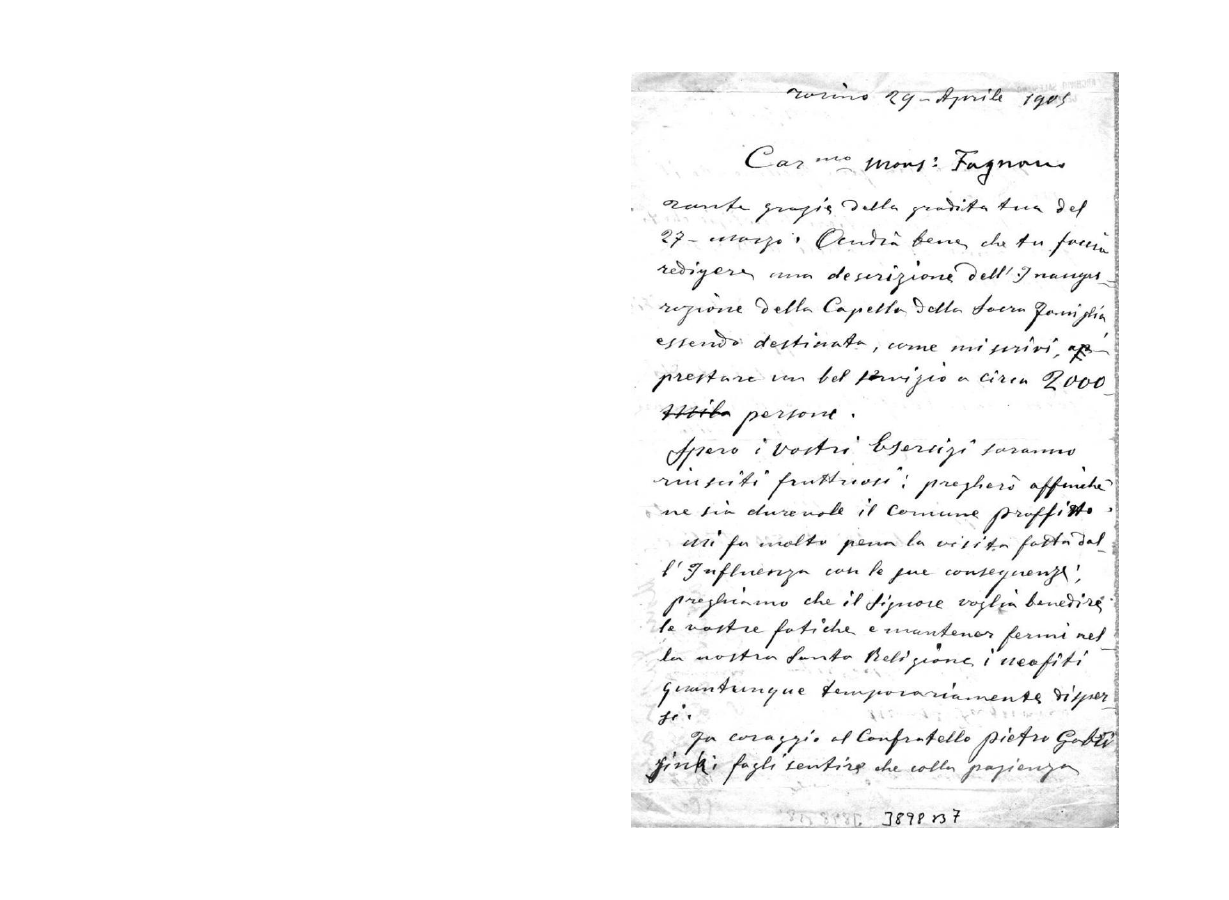 Torino 29 - Aprile 1905
Car mo Mons: Fagnano
Tante grazie della gradita tua del
27 - marzo. Andrà bene che tu faccia
redigere una descrizione dell' Inaugu-
razione della Capella della Sacra Famiglia
essendo destinata, come mi scrivi, a
prestare un bel servizio a circa 2000
mila persone.
Spero i vostri Esercizi saranno
riusciti fruttuosi; pregherò affinchè
ne sia durevole il comune proffitto.
Mi fa molto pena la visita fatta dal-
l'Influenza con le sue conseguenze;
preghiamo che il Signore voglia benedire
le vostre fatiche e mantener fermi nel-
la nostra Santa Religione i neofiti
quantunque temporariamente disper-
si.
Fa coraggio al Confratello Pietro
fagli sentire che colla pazienza
3898 B7